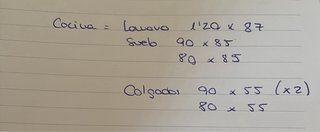 Cocina = Lavavo 1'20 x 87
Sueb 90 x 85
80 x 85
Colgador 90 x 55 (x2)
80 x 55